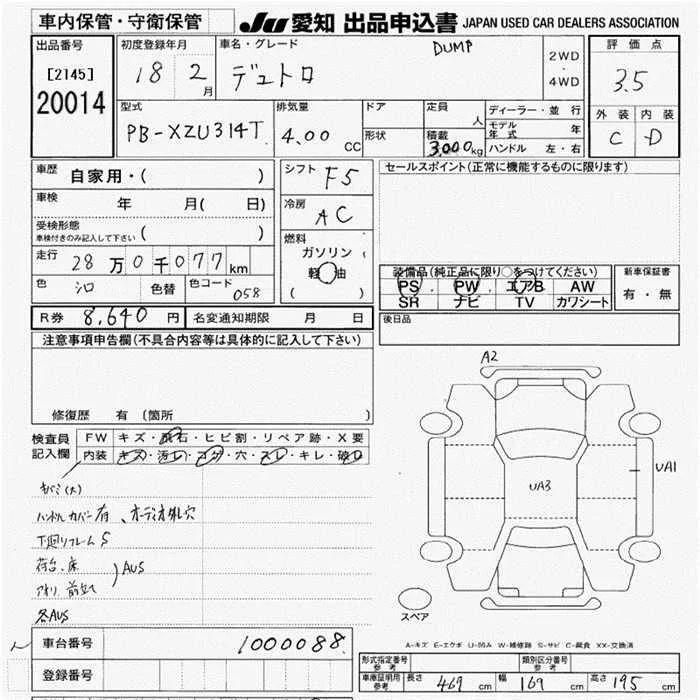 車内保管・守衛保管
JU 愛知 出品申込書 JAPAN USED CAR DEALERS ASSOCIATION
出品番号
[2145]
20014
初度登録年月
18 2 月
車名・グレード
デュトロ
DUMP
2WD
・
4WD
評価点
3.5
外装 内装
C D
型式
PB-XZU314T
排気量
4.00 CC
ドア
形状
定員 人
積載 3,000 kg
ディーラー・並行
モデル年式 年
ハンドル 左・右
車歴 自家用・( )
車検 年 月( 日)
受検形態
車検付きのみ記入して下さい ( )
走行 28万0千077km
色 シロ 色替 色コード 058
シフト F5
冷房 AC
燃料
ガソリン
軽油
( )
セールスポイント(正常に機能するものに限ります)
装備品(純正品に限り○をつけてください)
PS PW エアB AW
SR ナビ TV カワシート
新車保証書
有・無
R券 8,640 円 名変通知期限 月 日
後日品
注意事項申告欄(不具合内容等は具体的に記入して下さい)
修復歴 有 〔箇所 〕
検査員記入欄
FW キズ・飛石・ヒビ割・リペア跡・X要
内装 キズ・汚レ・コゲ・穴・スレ・キレ・破レ
ハンドルカバー有、オーディオ外し穴
下廻りフレームS
荷台、床
アオリ 前立て
AUS
各AUS
A2
UA3
UA1
スペア
A-キズ E-エクボ U-凹み W-補修跡 S-サビ C-腐食 XX-交換済
車台番号 1000088
登録番号
型式指定番号 参考
類別区分番号 参考
車庫証明用 参考 長さ 469 cm 幅 169 cm 高さ 195 cm